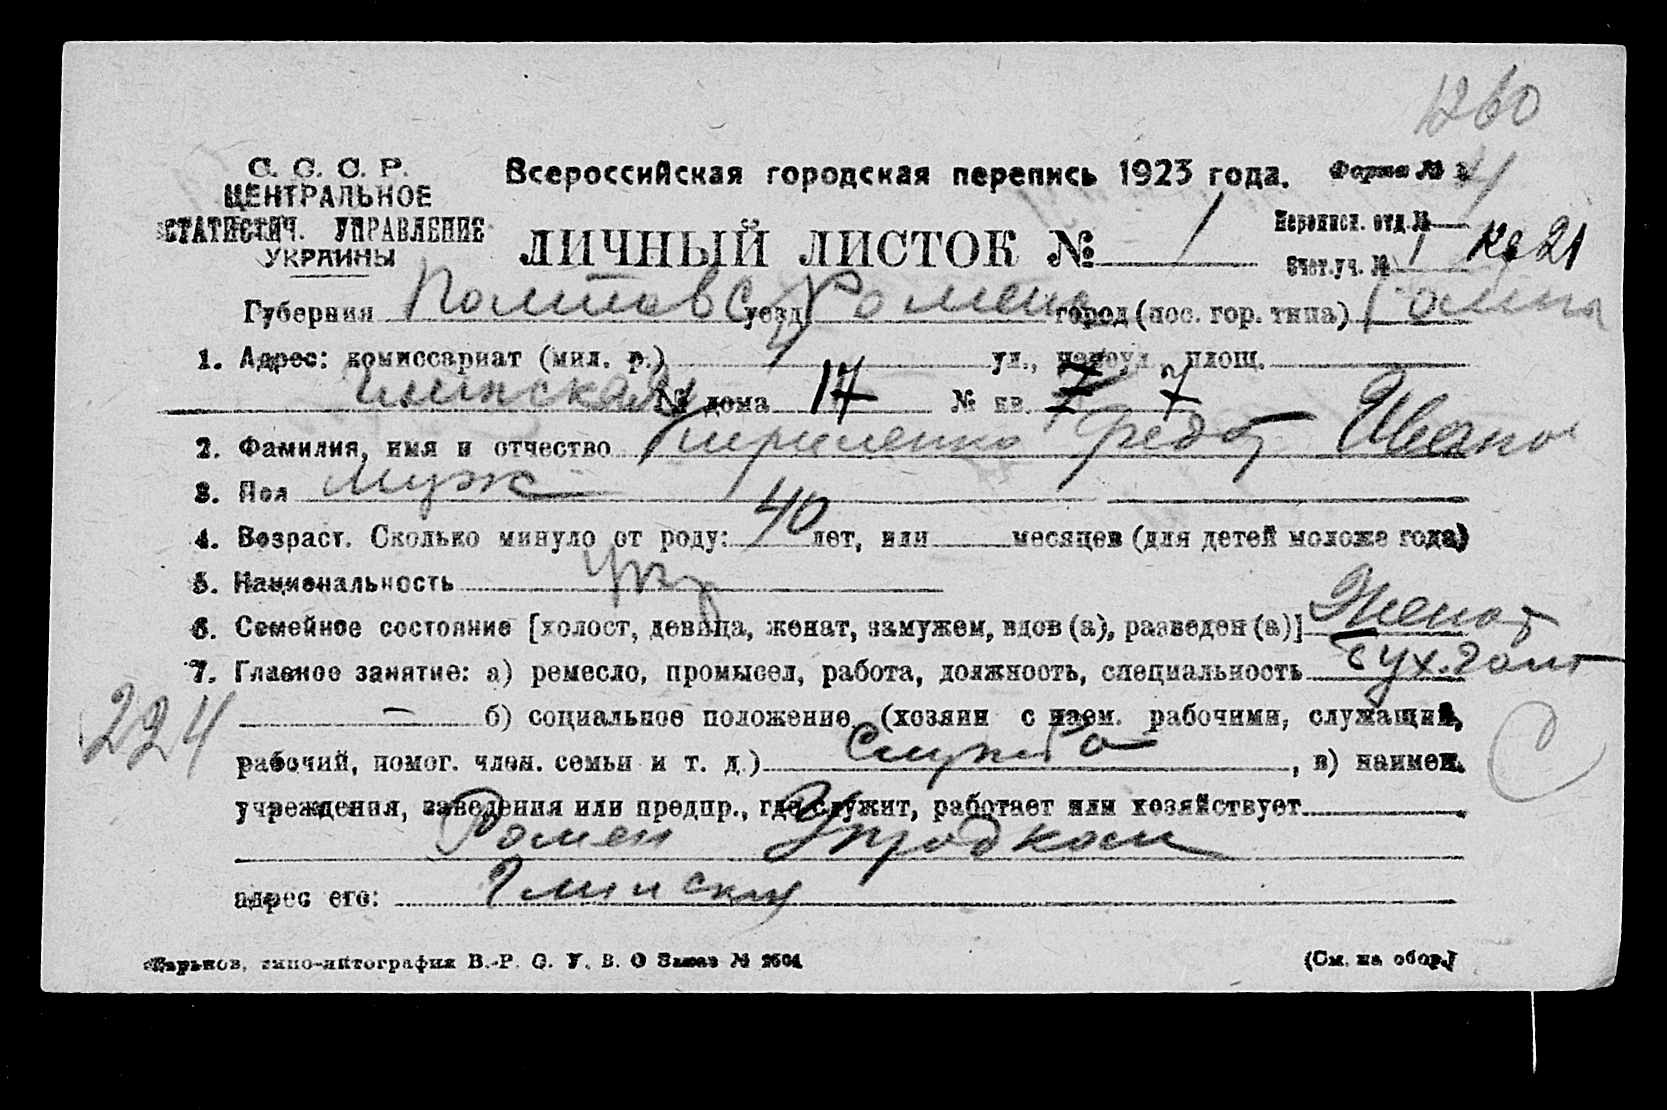 1260
С. С. С. Р.
ЦЕНТРАЛЬНОЕ
СТАТИСТИЧ. УПРАВЛЕНИЕ
УКРАИНЫ
Всероссийская городская перепись 1923 года.
Форма № 4
ЛИЧНЫЙ ЛИСТОК № 1
Переписн. отд. №
Счет. уч. № 1
Губерния Полтавс уезд Ромен город (пос. гор. типа)
1. Адрес: комиссариат (мил. р.) 4 ул., переул., площ.
Глинская № дома 17 № кв. 7 7
2. Фамилия, имя и отчество Кириленко Федот Иванов
3. Пол Муж
4. Возраст. Сколько минуло от роду: 40 лет, или месяцев (для детей моложе года)
5. Национальность Укр
6. Семейное состояние [холост, девица, женат, замужем, вдов (а), разведен (а)] Женат
7. Главное занятие: а) ремесло, промысел, работа, должность, специальность бухгалт
224 — б) социальное положение (хозяин с наем. рабочими, служащий,
рабочий, помог. член. семьи и т. д.) служба, в) наимен.
учреждения, заведения или предпр., где служит, работает или хозяйствует
Ромен Упродком
адрес его: Глинская
Харьков, типо-литография В.-Р. С. У. В. О Заказ № 2504
(См. на обор.)